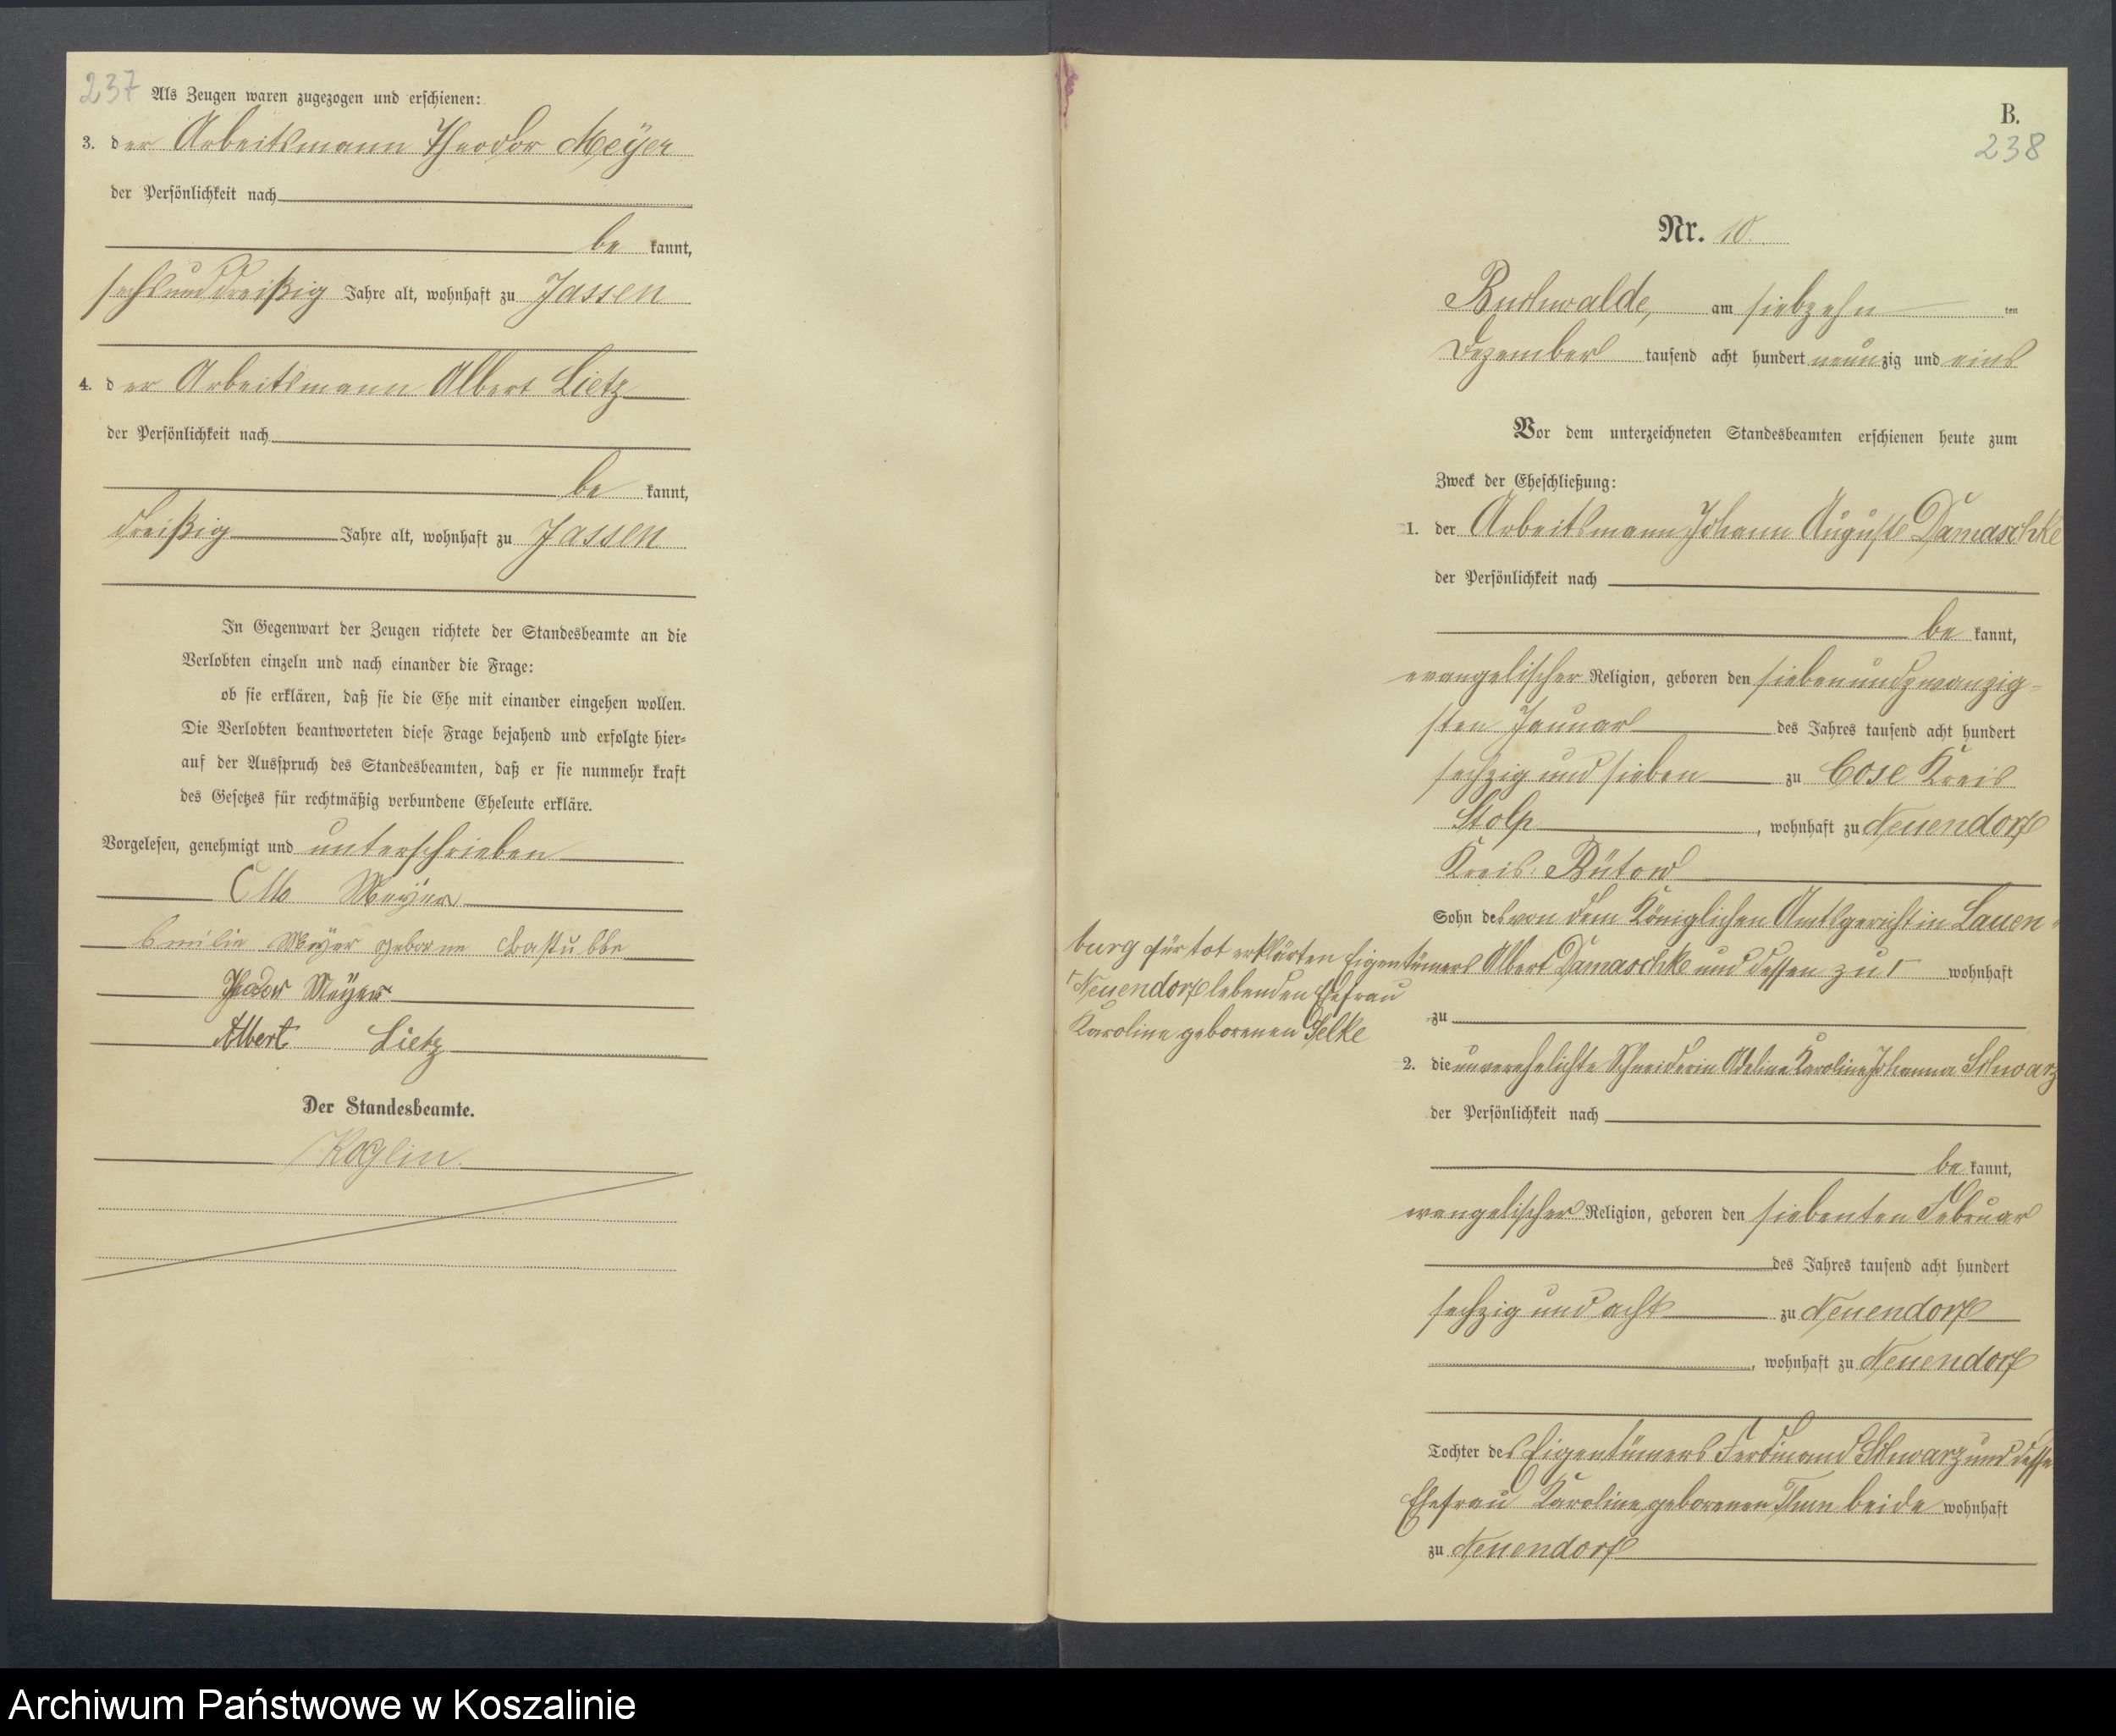 237 Als Zeugen waren zugezogen und erschienen:
3. der Arbeitsmann Theodor Meÿer
der Persönlichkeit nach
be kannt,
sechsunddreißig Jahre alt, wohnhaft zu Jassen
4. der Arbeitsmann Albert Lietz
der Persönlichkeit nach
be kannt,
dreißig Jahre alt, wohnhaft zu Jassen
In Gegenwart der Zeugen richtete der Standesbeamte an die
Verlobten einzeln und nach einander die Frage:
ob sie erklären, daß sie die Ehe mit einander eingehen wollen.
Die Verlobten beantworteten diese Frage bejahend und erfolgte hier=
auf der Ausspruch des Standesbeamten, daß er sie nunmehr kraft
des Gesetzes für rechtmäßig verbundene Eheleute erkläre.
Vorgelesen, genehmigt und unterschrieben
Otto Meÿer
Emilie Meyer geborne
Theodor Meÿer
Albert Lietz
Der Standesbeamte.
Koglin.
B.
238
Nr. 10
Buchwalde, am siebzehn ten
Dezember tausend acht hundert neunzig und eins
Vor dem unterzeichneten Standesbeamten erschienen heute zum
Zweck der Eheschließung:
1. der Arbeitsmann Johann August Damaschke
der Persönlichkeit nach
be kannt,
evangelischer Religion, geboren den siebenundzwanzig=
sten Januar des Jahres tausend acht hundert
sechzig und sieben zu Cose Kreis
Stolp, wohnhaft zu Neuendorf
Kreis Bütow
Sohn des von dem Königlichen Amtsgericht in Lauen=
burg für tot erklärten Eigentümers Albert Damaschke und dessen zu ⌈ wohnhaft
⌈ Neuendorf lebenden Ehefrau
Karoline geborenen Selke
zu
2. die unverehelichte Schneiderin Adeline Karoline Johanna Schwarz
der Persönlichkeit nach
be kannt,
evangelischer Religion, geboren den siebenten Februar
des Jahres tausend acht hundert
sechzig und acht zu Neuendorf
, wohnhaft zu Neuendorf
Tochter des Eigentümers Ferdinand Schwarz und dessen
Ehefrau Karoline geborenen beide wohnhaft
zu Neuendorf
Archiwum Państwowe w Koszalinie